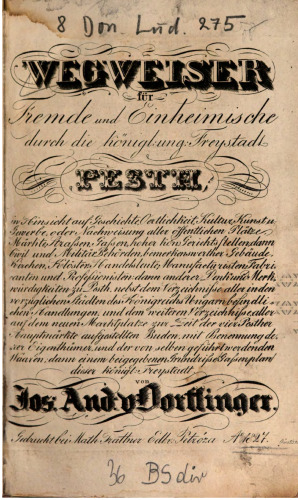 8 Don. Lud. 275
WEGWEISER
für
Fremde und Einheimische
durch die königl. ung. Freystadt
PESTH,
in Hinsicht auf Geschichte, Oertlichkeit, Kultur, Kunst u.
Gewerbe, oder Nachweisung aller öffentlichen Plätze
Märkte, Straßen, Gaßen, hoher k.k. Gerichts Stellen, dann
Civil und Militär Behörden, bemerkenswerther Gebäude,
Kirchen, Klöster, Handelsleute, Manufacturisten, Fabri-
canten und Professionisten, dann mehrerer
würdigkeiten zu Pesth, nebst dem Verzeichniße aller in den
vorzüglichen Städten des Königreichs Ungarn befindli-
chen Handlungen, und dem weitern Verzeichniße aller
auf dem neuen Marktplatze zur Zeit der vier Pesther
Hauptmärkte aufgestellten Buden, mit Benennung de-
ren Eigenthümer, und der von selben geführt werdenden
Waaren, dann einem beigegebenen Gaßenplan
dieser königl. Freystadt.
von
Jos. And. v. Dorffinger.
Gedruckt bei Math. Trattner Edl. v. Petróza 1827.
36 BS div